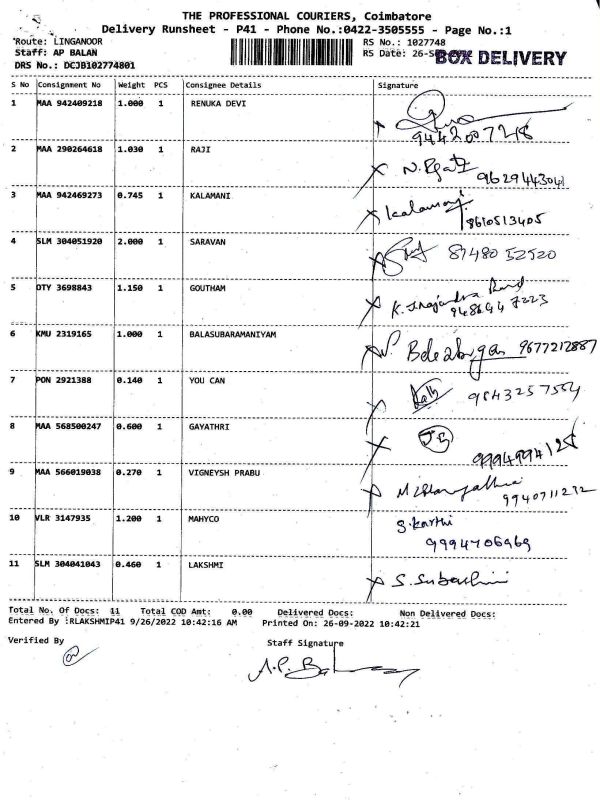 THE PROFESSIONAL COURIERS, Coimbatore
Delivery Runsheet - P41 - Phone No.:0422-3505555 - Page No.:1
Route: LINGANOOR
RS No.: 1027748
Staff: AP BALAN
RS Date: 26-S
BOX DELIVERY
DRS No.: DCJB102774801
S No Consignment No Weight PCS Consignee Details Signature
1 MAA 942409218 1.000 1 RENUKA DEVI
9442007218
2 MAA 290264618 1.030 1 RAJI
9629443041
3 MAA 942469273 0.745 1 KALAMANI Kalamani
8610513405
4 SLM 304051920 2.000 1 SARAVAN 87480 52520
5 OTY 3698843 1.150 1 GOUTHAM
94869 47223
6 KMU 2319165 1.000 1 BALASUBARAMANIYAM
9677212887
7 PON 2921388 0.140 1 YOU CAN
9843257554
8 MAA 568500247 0.600 1 GAYATHRI
9994994128
9 MAA 566019038 0.270 1 VIGNEYSH PRABU
9940711232
10 VLR 3147935 1.200 1 MAHYCO S.Karthi
9994706969
11 SLM 304041043 0.460 1 LAKSHMI
S. Subashini
Total No. Of Docs: 11 Total COD Amt: 0.00 Delivered Docs: Non Delivered Docs:
Entered By :RLAKSHMIP41 9/26/2022 10:42:16 AM Printed On: 26-09-2022 10:42:21
Verified By Staff Signature
A.P. Balan